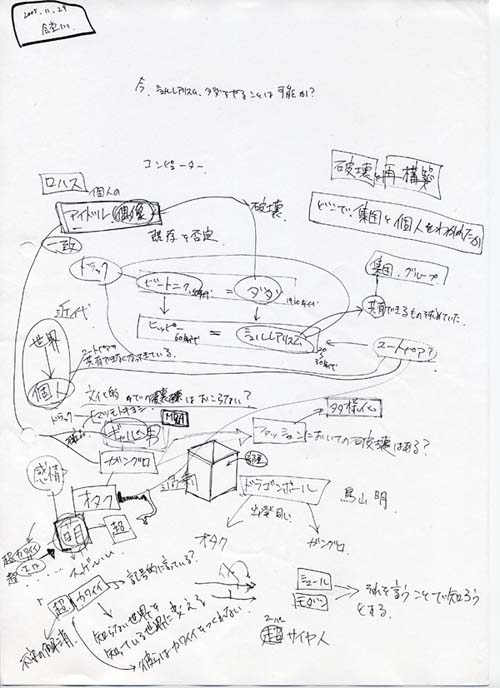 2005.11.29
食堂にて
今、シュルレアリスム、ダダをやることは可能か?
コンピューター
ロハス
個人の
アイドル 偶像
破壊
既存を否定
一致
破壊 再構築
どこで集団と個人をわけるのか
集団、グループ
共有できるものを求めていた
ドラッグ
ビートニク 50年代 = ダダ 1910年代
ヒッピー 60年代 = シュルレアリスム
20
30年代
ユートピア?
近代
世界
個人
共有できなくなってきている。
文化的な破壊はおこらない?
ドラッグ
M&A
ギャル男
ガングロ
ファッションにおいての破壊はある?
多様化
感情
オタク
萌
超
超カワイイ
超エロ
ドラゴンボール
鳥山明
オタク
ガングロ
超 カワイイ
記号的になっている?
知らない世界を
知っている世界に変える
シュール
モダン
それを言うことで知ろう
とする。
スーパー
超サイヤ人